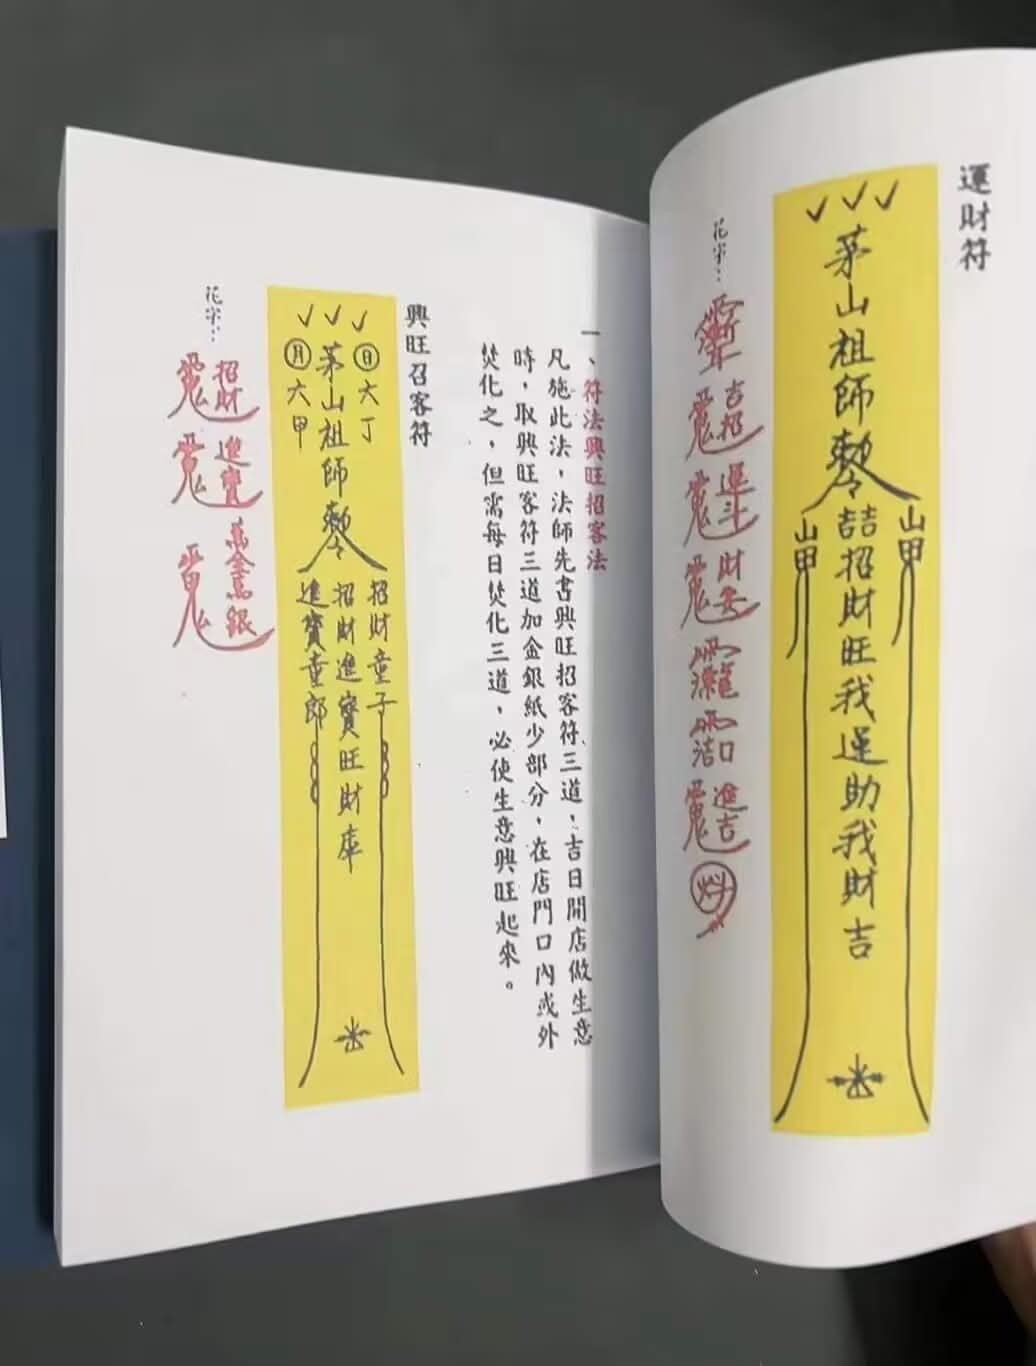 運財符
茅山祖師勅令
喆招財旺我運助我財吉
花字：
吉招
運斗
財
進吉
一、符法興旺招客法
凡施此法，法師先書興旺招客符三道，吉日開店做生意
時，取興旺客符三道加金銀紙少部分，在店門口內或外
焚化之，但需每日焚化三道，必使生意興旺起來。
興旺召客符
日六丁
茅山祖師勅令
月六甲
招財童子
招財進寶旺財庫
進寶童郎
花字：
招財
進寶
萬金萬銀